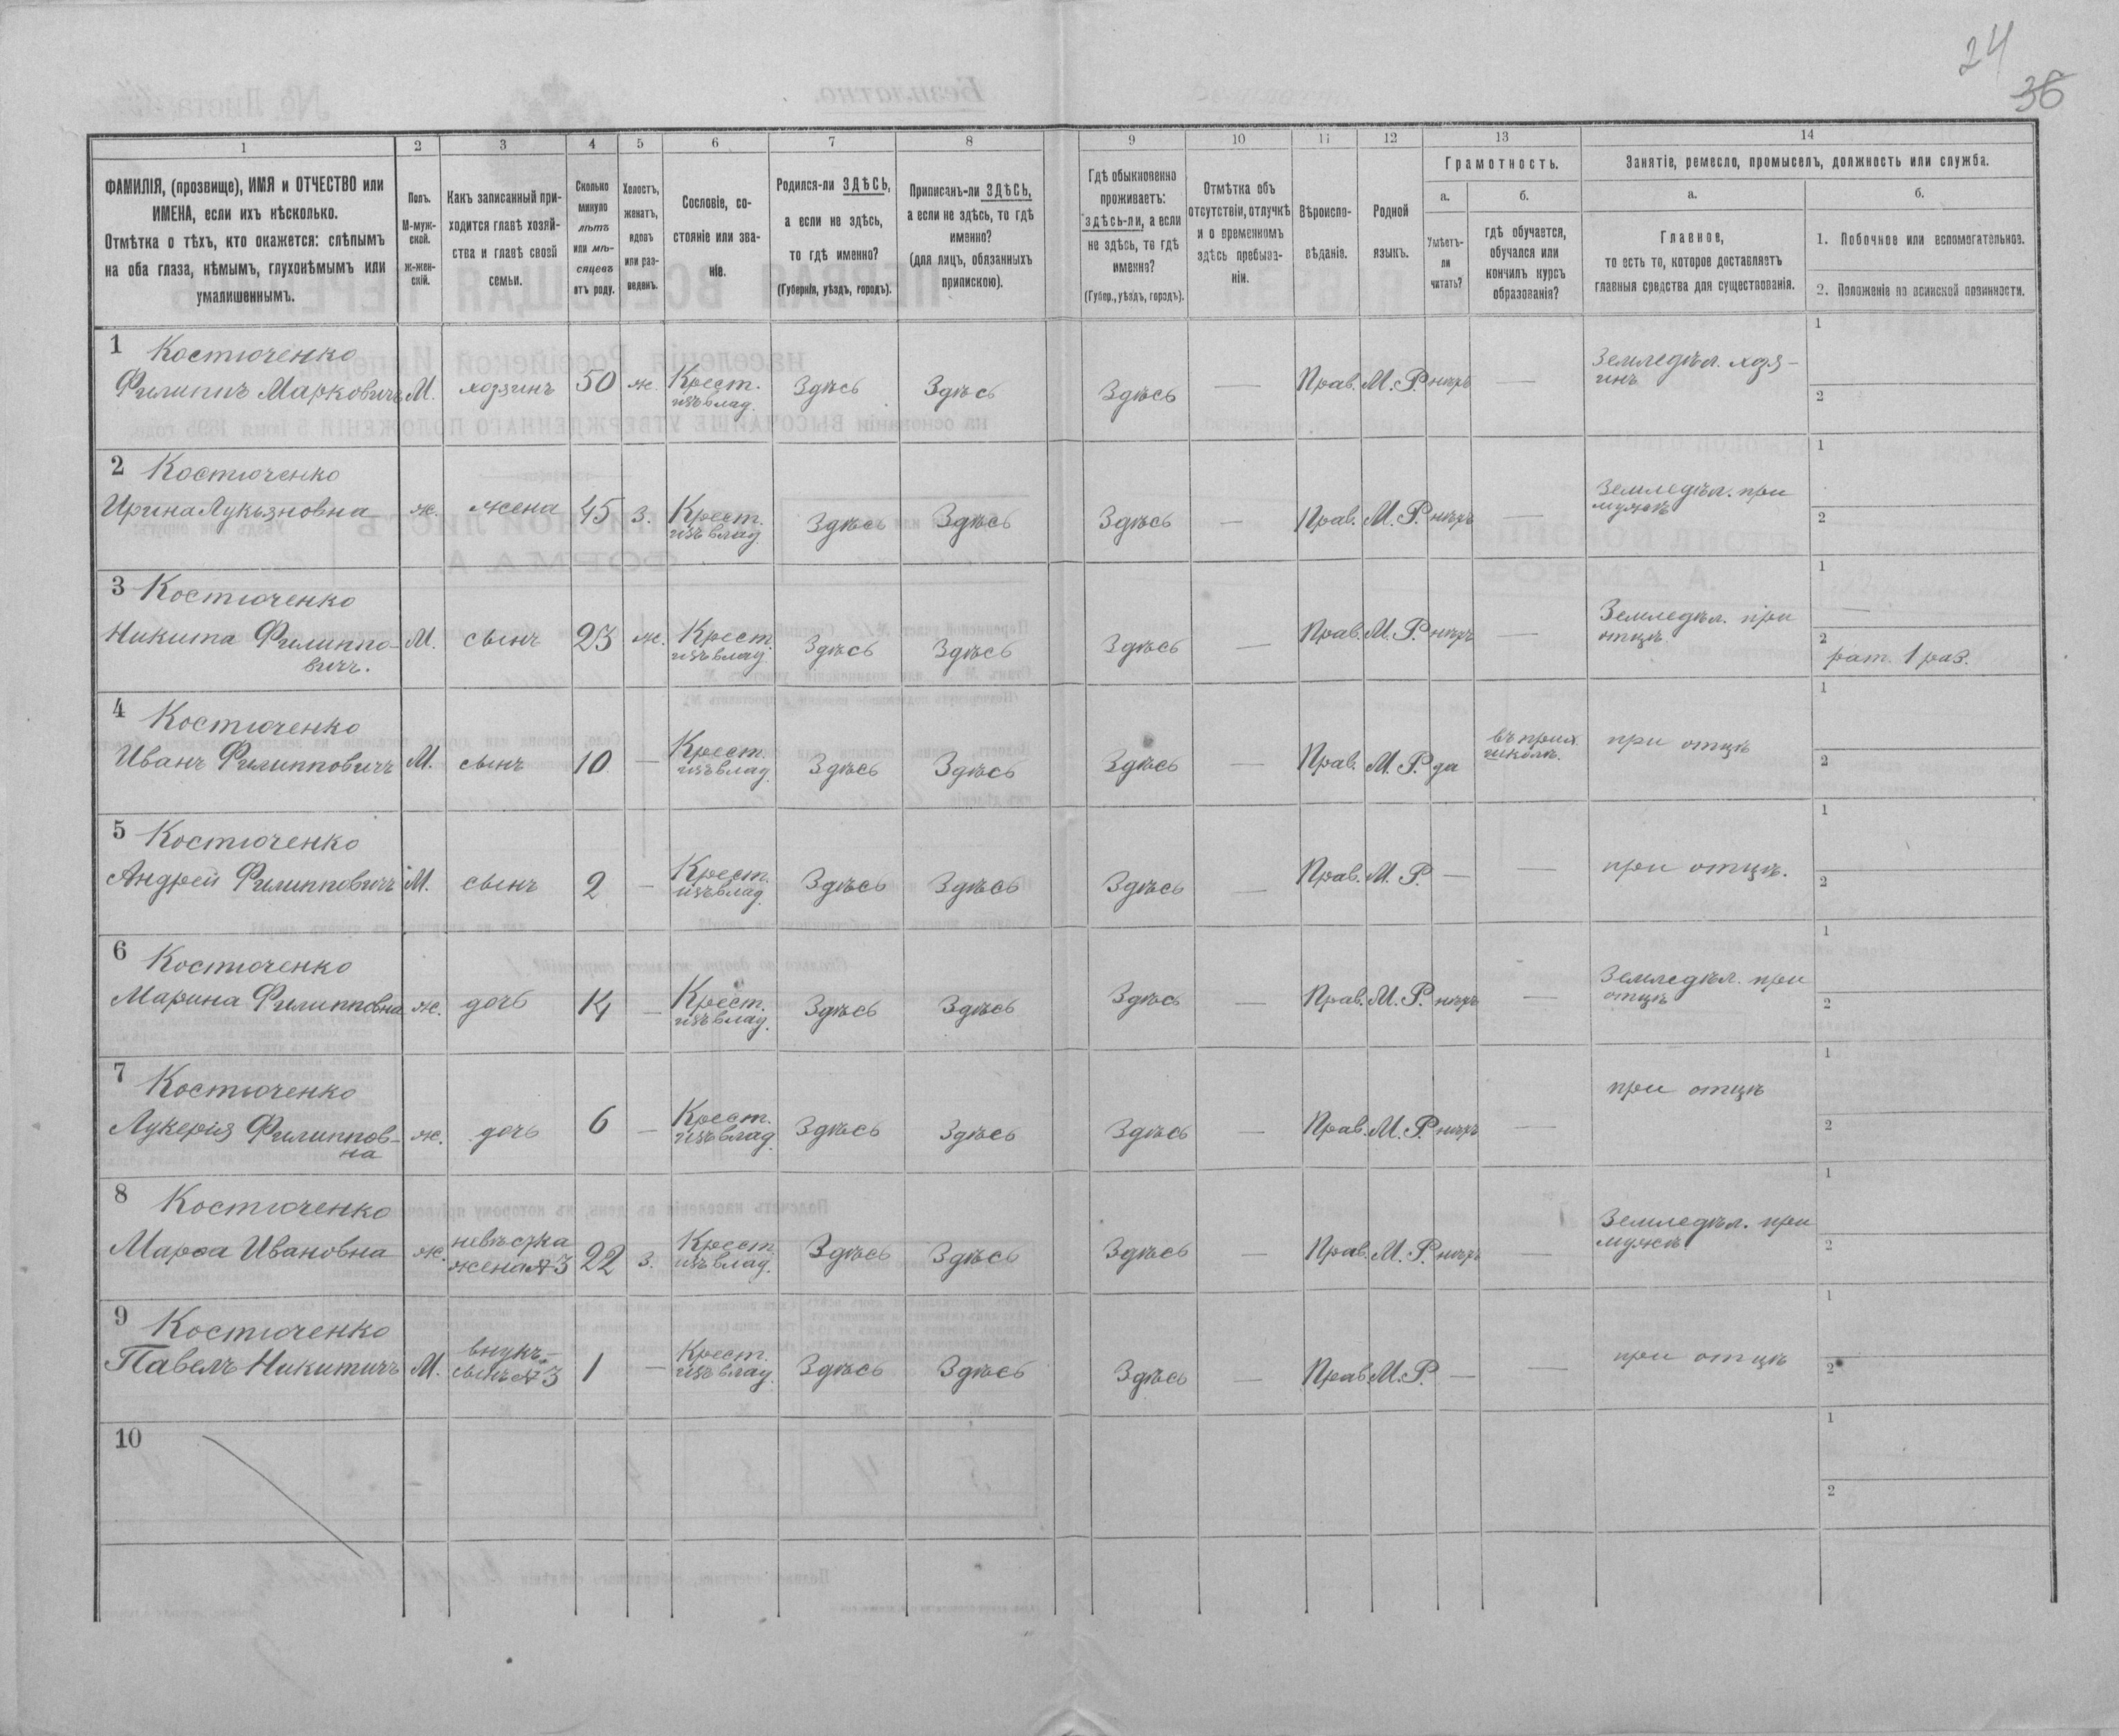 24
36
1 2 3 4 5 6 7 8 9 10 11 12 13 14
ФАМИЛІЯ, (прозвище), ИМЯ и ОТЧЕСТВО или
ИМЕНА, если ихъ нѣсколько.
Отмѣтка о тѣхъ, кто окажется: слѣпымъ
на оба глаза, нѣмымъ, глухонѣмымъ или
умалишеннымъ.
Полъ.
М-муж-
ской.
ж-жен-
скій.
Какъ записанный при-
ходится главѣ хозяй-
ства и главѣ своей
семьи.
Сколько
минуло
лѣтъ
или мѣ-
сяцевъ
отъ роду.
Холостъ,
женатъ,
вдовъ
или раз-
веденъ.
Сословіе, со-
стояніе или зва-
ніе.
Родился-ли ЗДѢСЬ,
а если не здѣсь,
то гдѣ именно?
(Губернія, уѣздъ, городъ).
Приписанъ-ли ЗДѢСЬ,
а если не здѣсь, то гдѣ
именно?
(для лицъ, обязанныхъ
припискою).
Гдѣ обыкновенно
проживаетъ:
здѣсь-ли, а если
не здѣсь, то гдѣ
именно?
(Губер., уѣздъ, городъ).
Отмѣтка объ
отсутствіи, отлучкѣ
и о временномъ
здѣсь пребыва-
ніи.
Вѣроиспо-
вѣданіе.
Родной
языкъ.
Грамотность.
а.
Умѣетъ-
ли
читать?
б.
гдѣ обучается,
обучался или
кончилъ курсъ
образованія?
Занятіе, ремесло, промыселъ, должность или служба.
а.
Главное,
то есть то, которое доставляетъ
главныя средства для существованія.
б.
1. Побочное или вспомогательное.
2. Положеніе по воинской повинности.
1 Костюченко
Филиппъ Марковичъ М. хозяинъ 50 ж. Крест. изъ влад. Здѣсь Здѣсь Здѣсь — Прав. М. Р. нѣтъ — Земледѣл. хозя-
инъ
1
2
2 Костюченко
Ирина Лукьяновна ж. жена 45 З. Крест. изъ влад. Здѣсь Здѣсь Здѣсь — Прав. М. Р. нѣтъ — Земледѣл. при
мужѣ
1
2
3 Костюченко
Никита Филиппо-
вичъ. М. сынъ 23 ж. Крест. изъ влад. Здѣсь Здѣсь Здѣсь — Прав. М. Р. нѣтъ — Земледѣл. при
отцѣ
1 —
2 рат. 1 раз.
4 Костюченко
Иванъ Филипповичъ М. сынъ 10 — Крест. изъ влад. Здѣсь Здѣсь Здѣсь — Прав. М. Р. да въ приход.
школѣ. при отцѣ
1
2
5 Костюченко
Андрей Филипповичъ М. сынъ 2 — Крест. изъ влад. Здѣсь Здѣсь Здѣсь — Прав. М. Р. — — при отцѣ.
1
2
6 Костюченко
Марина Филипповна ж. дочь 14 — Крест. изъ влад. Здѣсь Здѣсь Здѣсь — Прав. М. Р. нѣтъ — Земледѣл. при
отцѣ
1
2
7 Костюченко
Лукерія Филиппов-
на ж. дочь 6 — Крест. изъ влад. Здѣсь Здѣсь Здѣсь — Прав. М. Р. нѣтъ — при отцѣ
1
2
8 Костюченко
Марѳа Ивановна ж. невѣстка
жена №3 22 З. Крест. изъ влад. Здѣсь Здѣсь Здѣсь — Прав. М. Р. нѣтъ — Земледѣл. при
мужѣ
1
2
9 Костюченко
Павелъ Никитичъ М. внукъ-
сынъ №3 1 — Крест. изъ влад. Здѣсь Здѣсь Здѣсь — Прав. М. Р. — — при отцѣ
1
2
10
1
2